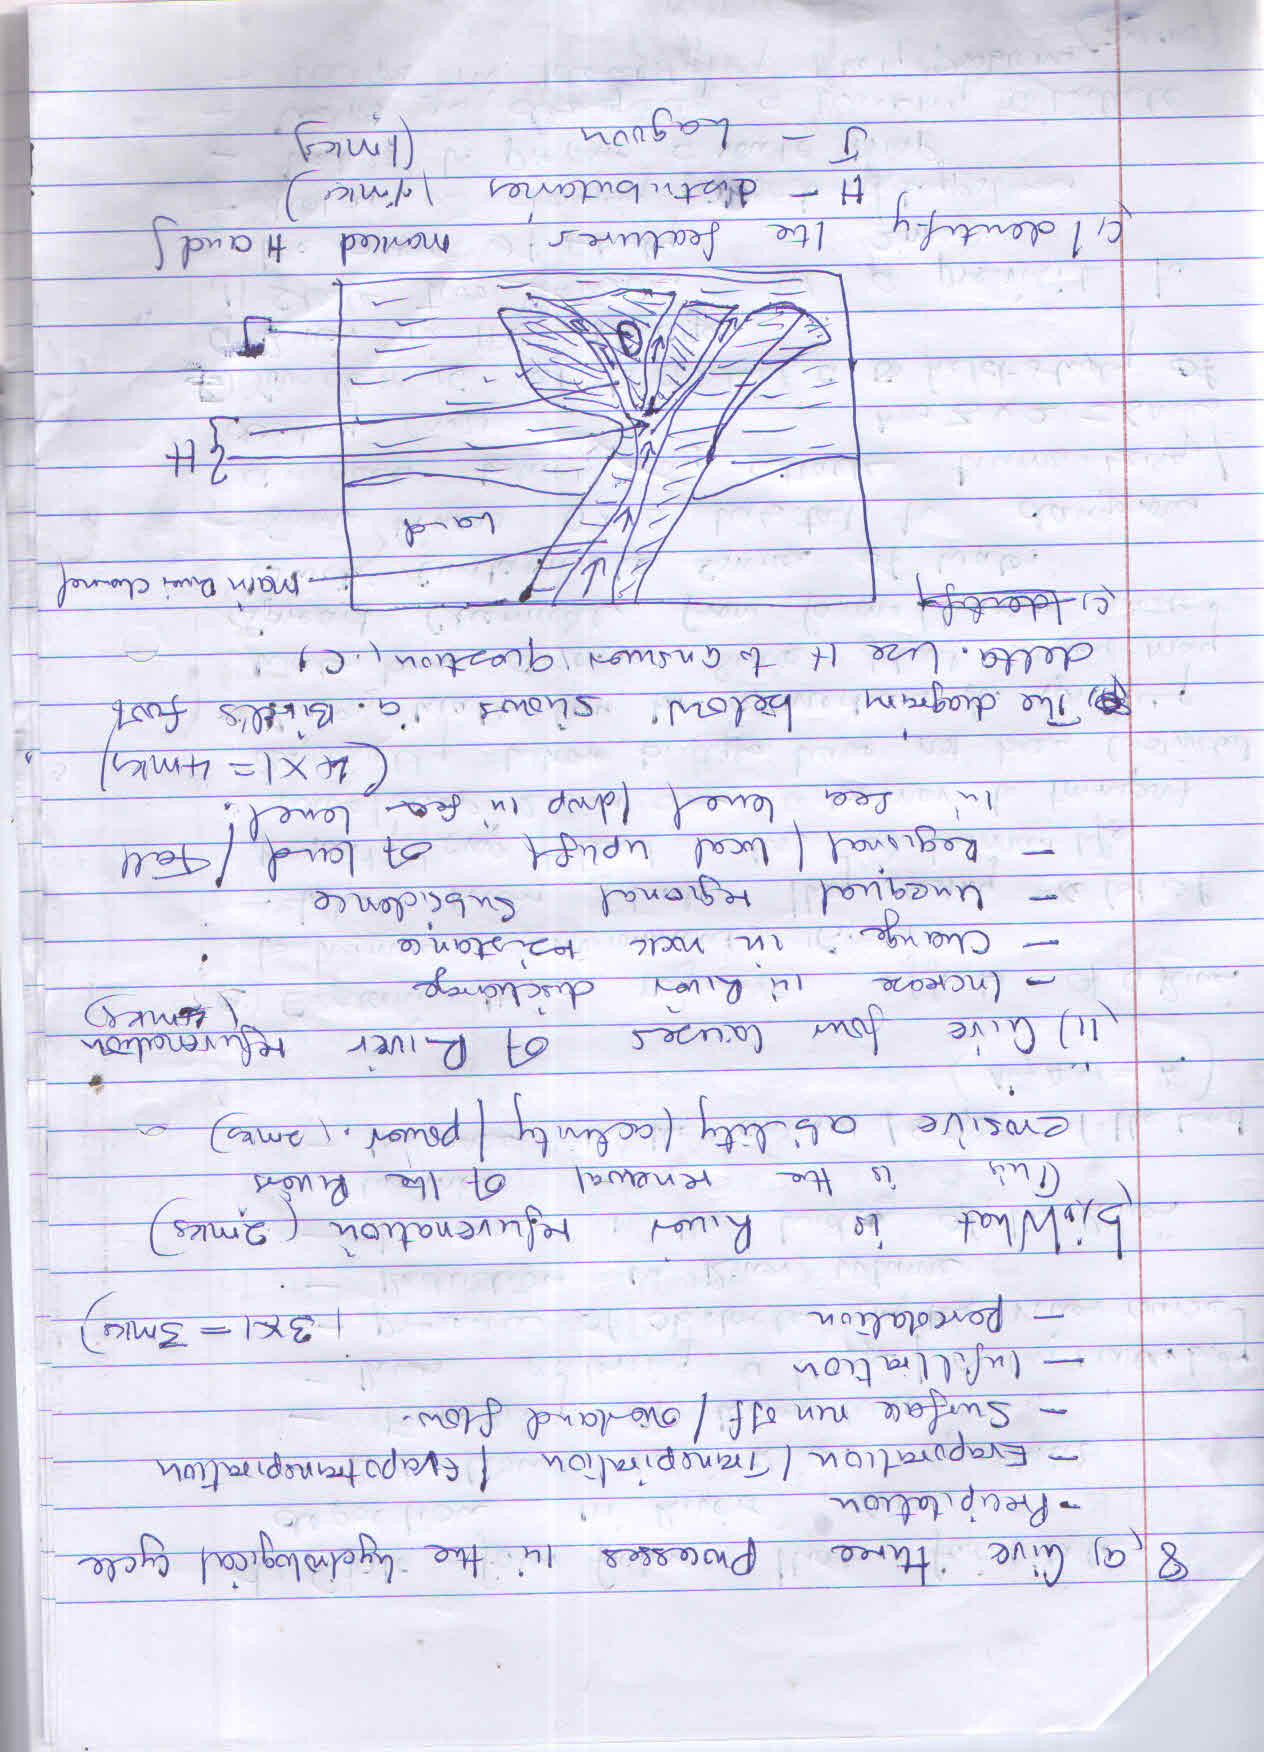 8,a) Give three processes in the hydrological cycle
- Precipitation
- Evaporation / Transpiration / Evapotranspiration
- Surface run off / overland flow.
- Infiltration
- percolation (3x1 = 3mks)
b,i) What is River rejuvenation (2mks)
This is the renewal of the Rivers
erosive ability / activity / power. (2mks)
(ii) Give four causes of River rejuvenation (4mks)
- Increase in River discharge
- Change in rock resistance
- Unequal regional subsidence
- Regional / local uplift of land / Fall
in sea level / drop in sea level.
(4x1 = 4mks)
The diagram below shows a Bird's foot
delta. Use it to answer question (c)
c) Identify
Main River Channel
Land
H
J
c) Identify the features marked H and J
H - distributaries (1mks)
J - Lagoon (1mks)